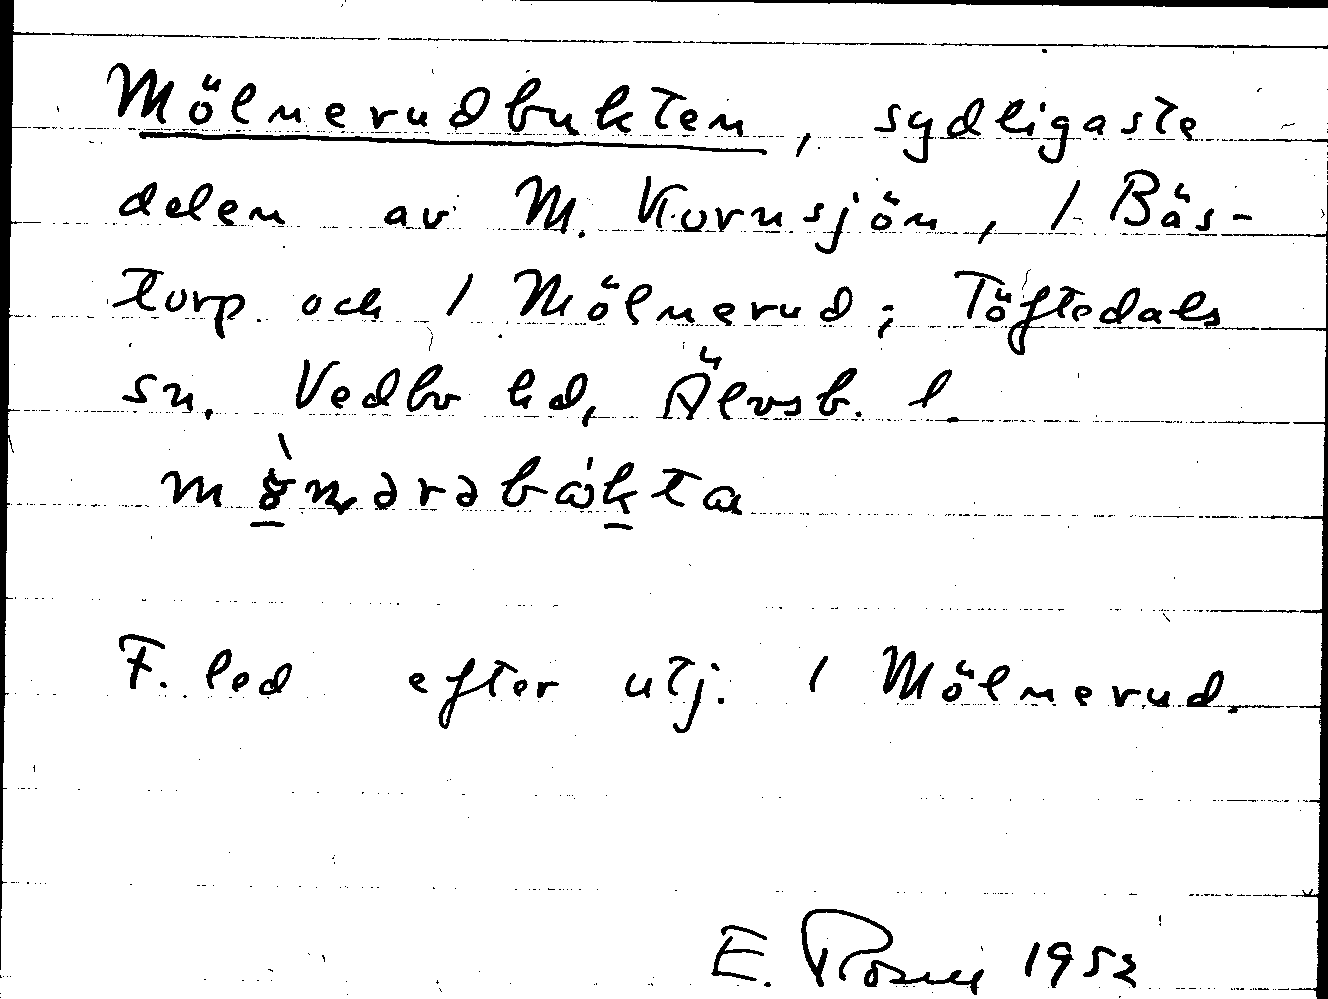 Mölnerudbukten, sydligaste
delen av M. Kornsjön, / Bäs-
torp och / Mölnerud; Töftedals
sn. Vedbo hd, Älvsb. l.
F. led efter utj. / Mölnerud.
E. Rosell 1952